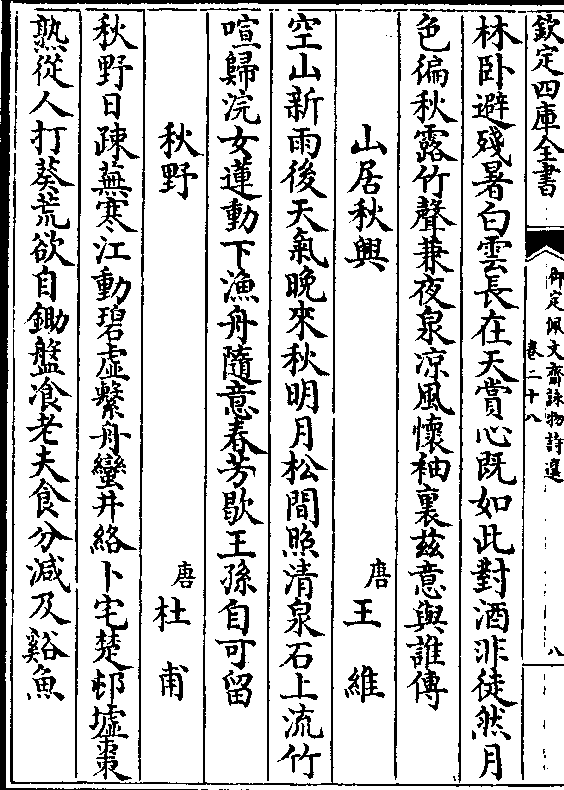 欽定四庫全書
御定佩文齋詠物詩選
卷二十八
八
林卧避殘暑白雲長在天賞心既如此對酒非徒然月
色偏秋露竹聲兼夜泉凉風懷袖裏兹意與誰傳
山居秋興
唐
王維
空山新雨後天氣晚來秋明月松間照清泉石上流竹
喧歸浣女蓮動下漁舟隨意春芳歇王孫自可留
秋野
唐
杜甫
秋野日疎蕪寒江動碧虛繫舟蠻井絡卜宅楚邨墟棗
熟從人打葵荒欲自鋤盤飡老夫食分減及谿魚